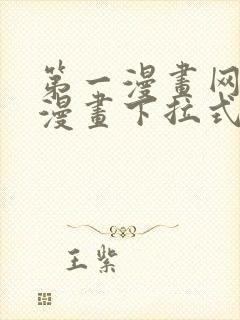 第一漫畫网
漫畫下拉式
王紫